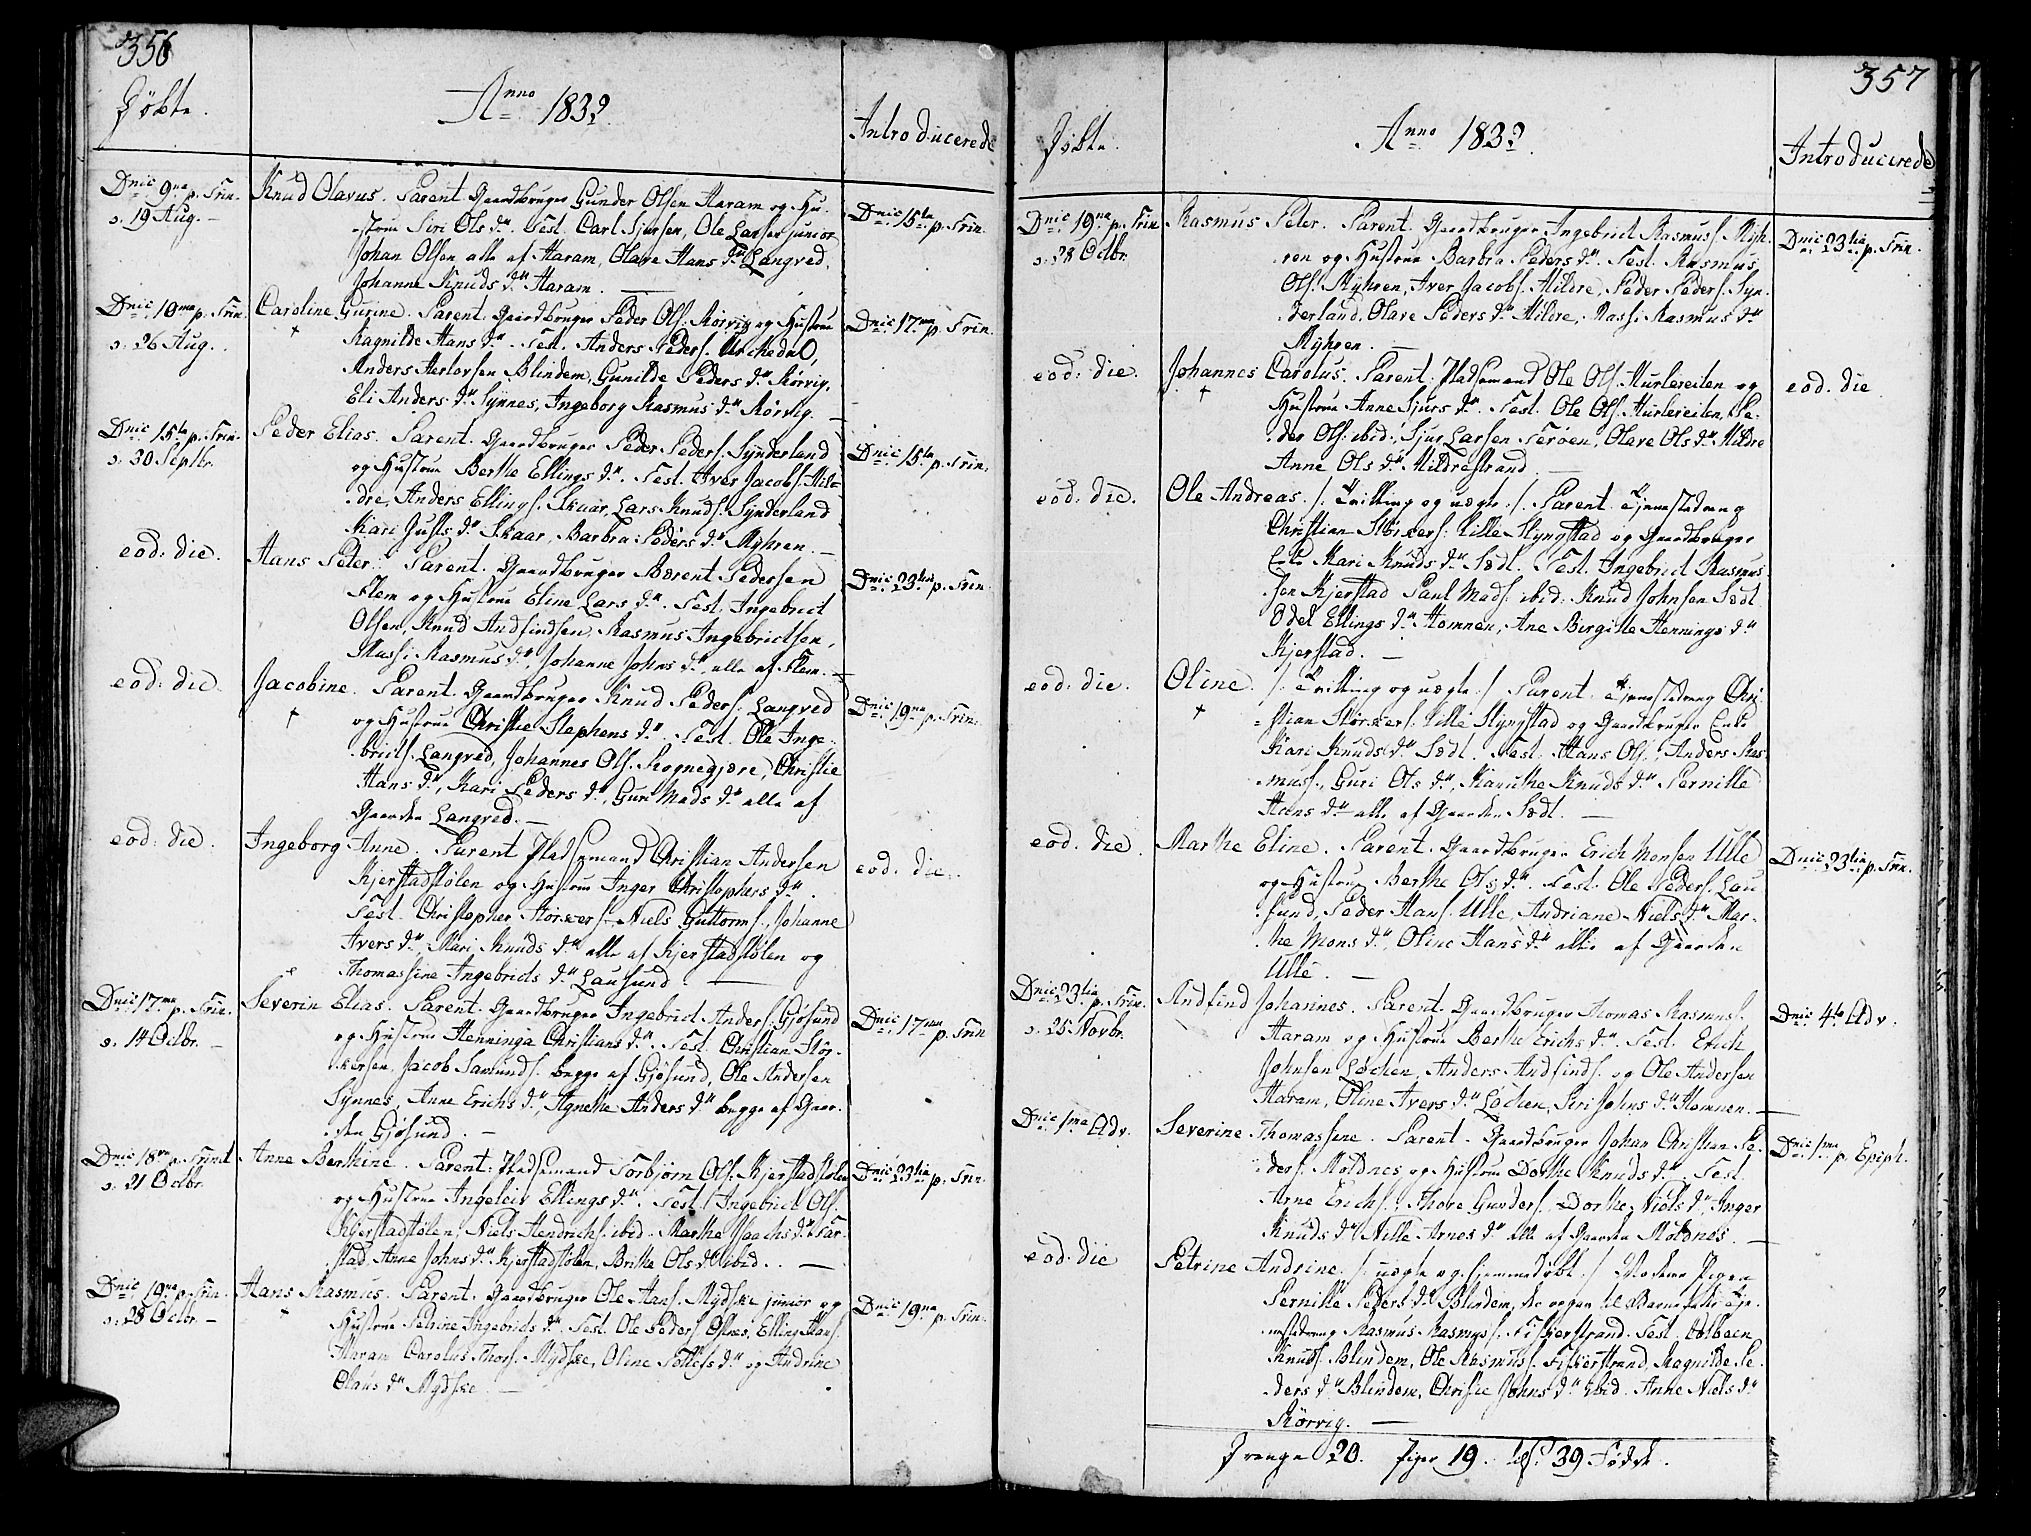 356
Døbte.
Anno 1832
Introducerede
Dnic 9na p. Trin.
d. 19 Aug.
Knud Olavus. Parent. Gaardbruger Gunder Olsen Haram og Hu-
strue Siri Ols dr. Test. Carl Sjursen, Ole Larsen junior
Johan Olsen alle af Haram, Olave Hans dr Langved,
Johanne Knuds dr Haram.
Dnic 15ta p. Trin.
Dnic 10ma p. Trin.
d. 26 Aug.
Caroline Gurine. Parent. Gaardbruger Peder Ols. Rörvig og Hustrue
†
Ragnilde Hans dr. Test. Anders Peders.
Anders Herlovsen Blindem, Gunilde Peders dr Rörvig,
Eli Anders dr Synnes, Ingeborg Rasmus dr Rörvig.
Dnic 17ma p. Trin.
Dnic 15ta p. Trin.
d. 30 Septbr.
Peder Elias. Parent. Gaardbruger Peder Peders. Synderland
og Hustrue Berthe Ellings dr. Test. Iver Jacobs. Hil-
dre, Anders Ellings. Skaar, Lars Knuds. Synderland
Kari Gusts dr Skaar, Barbra Peders dr Myhren.
Dnic 15ta p. Trin.
eod: die.
Hans Peter. Parent. Gaardbruger Bærent Pedersen
Flem og Hustrue Eline Lars dr. Test. Ingebrict
Olsen, Knud Andfindsen, Rasmus Ingebrictsen,
Massi Rasmus dr, Johanne Johns dr alle af Flem.
Dnic 23tia p. Trin.
eod: die.
Jacobine. Parent. Gaardbruger Knud Peders. Langved
†
og Hustrue Christie Stephens dr. Test. Ole Inge-
bricts. Langved, Johannes Ols. Rognegjære, Christie
Hans dr, Kari Peders dr, Guri Mads dr alle af
Gaarden Langved.
Dnic 19na p. Trin.
eod: die.
Ingeborg Anne. Parent. Pladsemand Christian Andersen
Kjerstadstölen og Hustrue Inger Christophers dr.
Test. Christopher Störkers. Niels Guttorms., Johanne
Ivers dr, Mari Knuds dr alle af Kjerstadstölen og
Thomassine Ingebricts dr Lausund.
eod. die.
Dnic 17ma p. Trin.
d. 14 Octbr.
Severin Elias. Parent. Gaardbruger Ingebrict Anders. Gjøsund
og Hustrue Henninga Christians dr. Test. Christian Stör-
kersen, Jacob Samunds. begge af Gjøsund, Ole Andersen
Synnes, Anne Erichs dr, Agnethe Anders dr begge af Gaar-
den Gjøsund.
Dnic 17ma p. Trin
Dnic 18va p. Trinit
d. 21 Octbr.
Anne Berthine. Parent. Pladsemand Torbjørn Ols. Kjerstadstölen
og Hustrue Ingeleiv Ellings dr. Test. Ingebrict Ols.
Kjerstadstölen, Niels Hendrichs. ibid. Marthe Isachs dr Far-
stad Anne Johns dr Kjerstadstölen, Brithe Ols dr ibid.
Dnic 23tia p. Trin.
Dnic 19na p. Trin.
d. 28 Octbr.
Hans Rasmus. Parent. Gaardbruger Ole Hans. Mydske junior og
†
Hustrue Petrine Ingebricts dr. Test. Ole Peders. Ulsnes, Elling Hans.
Haram Carolus Thors. Mydske, Oline Tollefs dr og Andrine
Claus dr Mydske.
Dnic 19na p. Trin.
357
Døbte.
Anno 1832.
Introducerede
Dnic 19na p. Trin
d. 28 Octbr.
Rasmus Peter. Parent. Gaardbruger Ingebrict Rasmuss. Myh-
ren og Hustrue Barbra Peders dr. Test. Rasmus
Ols. Myhren, Iver Jacobs. Hildre, Peder Peders. Syn-
derland, Olave Peders dr Hildre, Massi Rasmus dr
Myhren.
Dnic 23tia p. Trin.
eod: die.
Johannes Carolus. Parent. Pladsemand Ole Ols. Hurlereiten og
†
Hustrue Anne Sjurs dr. Test. Ole Ols. Hurlereiten, Pe-
der Ols. ibid., Sjur Larsen Terøen, Olave Ols dr Hildre
Anne Ols dr Hildrestrand.
eod. die
eod. die.
Ole Andreas. /: Tvilling og uægte :/ Parent. Tjenestedreng
Christian Störkers. Lille Slyngstad og Gaardbruger
Enke Kari Knuds dr Sædt. Test. Ingebrict Rasmus-
sen Kjerstad Paul Mads. ibid. Knud Johnsen Sædt
Odel Ellings dr Hamnen, Ane Birgitte Hennings dr
Kjerstad.
eod: die.
Oline. /: Tvilling og uægte :/ Parent. Tjenestedreng Chri-
†
stian Störkers. Lille Slyngstad og Gaardbruger Enke
Kari Knuds dr Sædt. Test. Hans Ols., Anders Ras-
muss., Guri Ols dr, Maruthe Knuds dr Pernille
Hans dr alle af Gaarden Sædt.
eod: die.
Marthe Eline. Parent. Gaardbruger Erich Monsen Ulle
og Hustrue Berthe Ols dr. Test. Ole Peders. Lau-
sund, Peder Hans. Ulle, Andriane Niels dr Mar-
the Mons dr, Oline Hans dr alle af Gaarden
Ulle.
Dnic 23tia p. Trin.
Dnic 23tia p. Trin.
d. 25 Novbr.
Andfind Johannes. Parent. Gaardbruger Thomas Rasmuss.
Haram og Hustrue Berthe Erichs dr. Test. Erich
Johnsen Löchen, Anders Andfinds. og Ole Andersen
Haram, Oline Ivers dr Löchen, Siri Johns dr Hamnen.
Dnic 4ta Adv.
Dnic 1ma Adv.
Severine Thomassene. Parent. Gaardbruger Johan Christian Pe-
ders. Moldnes og Hustrue Dorthe Knuds dr. Test.
Arne Erichs., Thore Gunders. Dorthe Niels dr, Inger
Knuds dr Nille Arnes dr alle af Gaarden Moldnes.
Dnic 1ma p. Epiph.
eod: die
Petrine Andrine. /: uægte og hjemmedøbt. :/ Moderen Pigen
Pernille Peders dr Blindem, der opgav til Barnefader Tje-
nestedreng Rasmus Rasmuss. Fiskerstrand. Test. Colbeen
Knuds. Blindem, Ole Rasmuss. Fiskerstrand, Ragnilde Pe-
ders dr Blindem, Christie Johns dr ibid. Anne Niels dr
Rörvig.
Drenge 20. Piger 19. 39 Fødte.